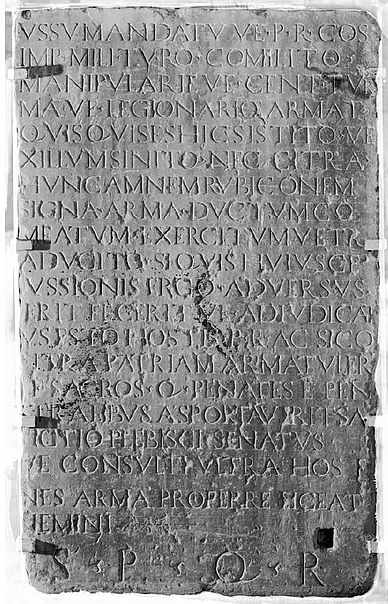 VSSV MANDATV VE·P·R·COS
IMP·MILI·TYRO·COMILITO
MANIPVLARIE VE·CENT
MA·VE·LEGIONARIO·ARMAT
QVISQVIS ES HIC SISTITO·VE
XILLVM SINITO·NEC CITRA
HVNC AMNEM RVBICONEM
SIGNA·ARMA·DVCTVM CO
MEATVM·EXERCITVM VE TR
ADVCITO·SI QVIS HVIVSCE
VSSIONIS ERGO·ADVERSVS
ERIT FECERIT VE ADIVDICA
VS ESTO HOSTIS P·R·AC SI CO
PATRIAM ARMA TVLER
SACROS·Q·PENATES E PEN
ALIBVS ASPORTAVERIT SA
CTIO PLEBISCI SENATVS
VE CONSVLTI VLTRA HOS
NES ARMA PROFERRE LICEAT
NEMINI
S·P·Q·R